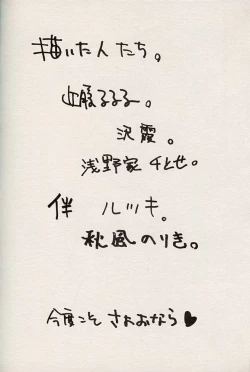 描いた人たち。
暇るるる〜。
沢霞。
浅野家 ちとせ。
伴 ルツキ。
秋風のりき。
今度こそ さよおなら♥